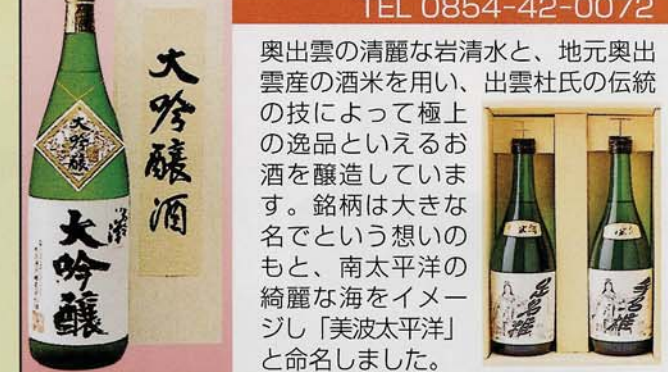 TEL 0854-42-0072
大吟醸酒
奥出雲の清麗な岩清水と、地元奥出
雲産の酒米を用い、出雲杜氏の伝統
の技によって極上
の逸品といえるお
酒を醸造していま
す。銘柄は大きな
名でという想いの
もと、南太平洋の
綺麗な海をイメー
ジし「美波太平洋」
と命名しました。
大吟醸
大吟醸